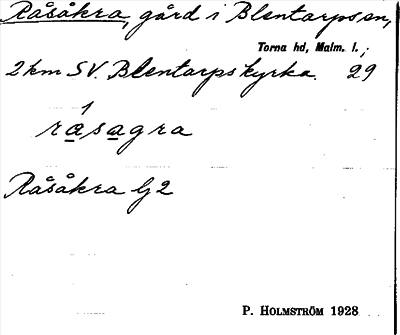 Råsåkra, gård i Blentarps sn,
Torna hd, Malm. l.,
2 km SV. Blentarps kyrka. 29
1
råsagra
Råsåkra Gj2
P. HOLMSTRÖM 1928